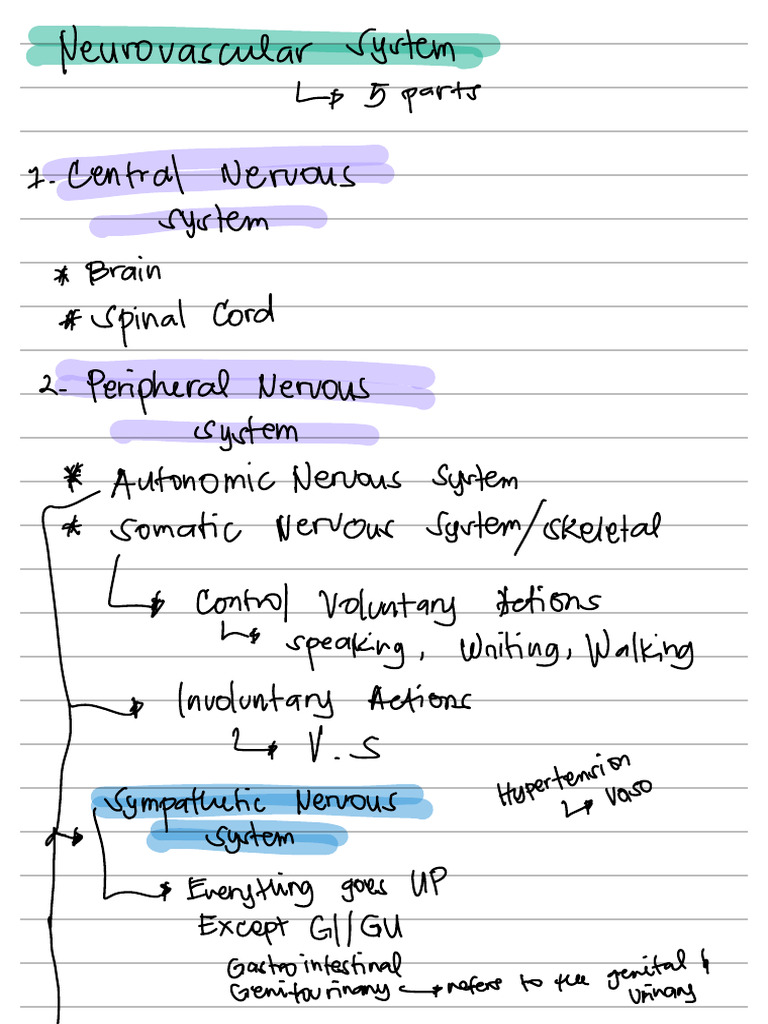 Neurovascular System
↳ 5 parts
1. Central Nervous
System
* Brain
* Spinal Cord
2. Peripheral Nervous
System
* Autonomic Nervous System
* Somatic Nervous System/Skeletal
↳ Control Voluntary Actions
↳ Speaking, Writing, Walking
→ Involuntary Actions
↳ V.S
Hypertension
↳ Vaso
→ Sympathetic Nervous
System
→ Everything goes UP
Except GI/GU
Gastrointestinal
Genitourinary → refers to the genital &
Urinary